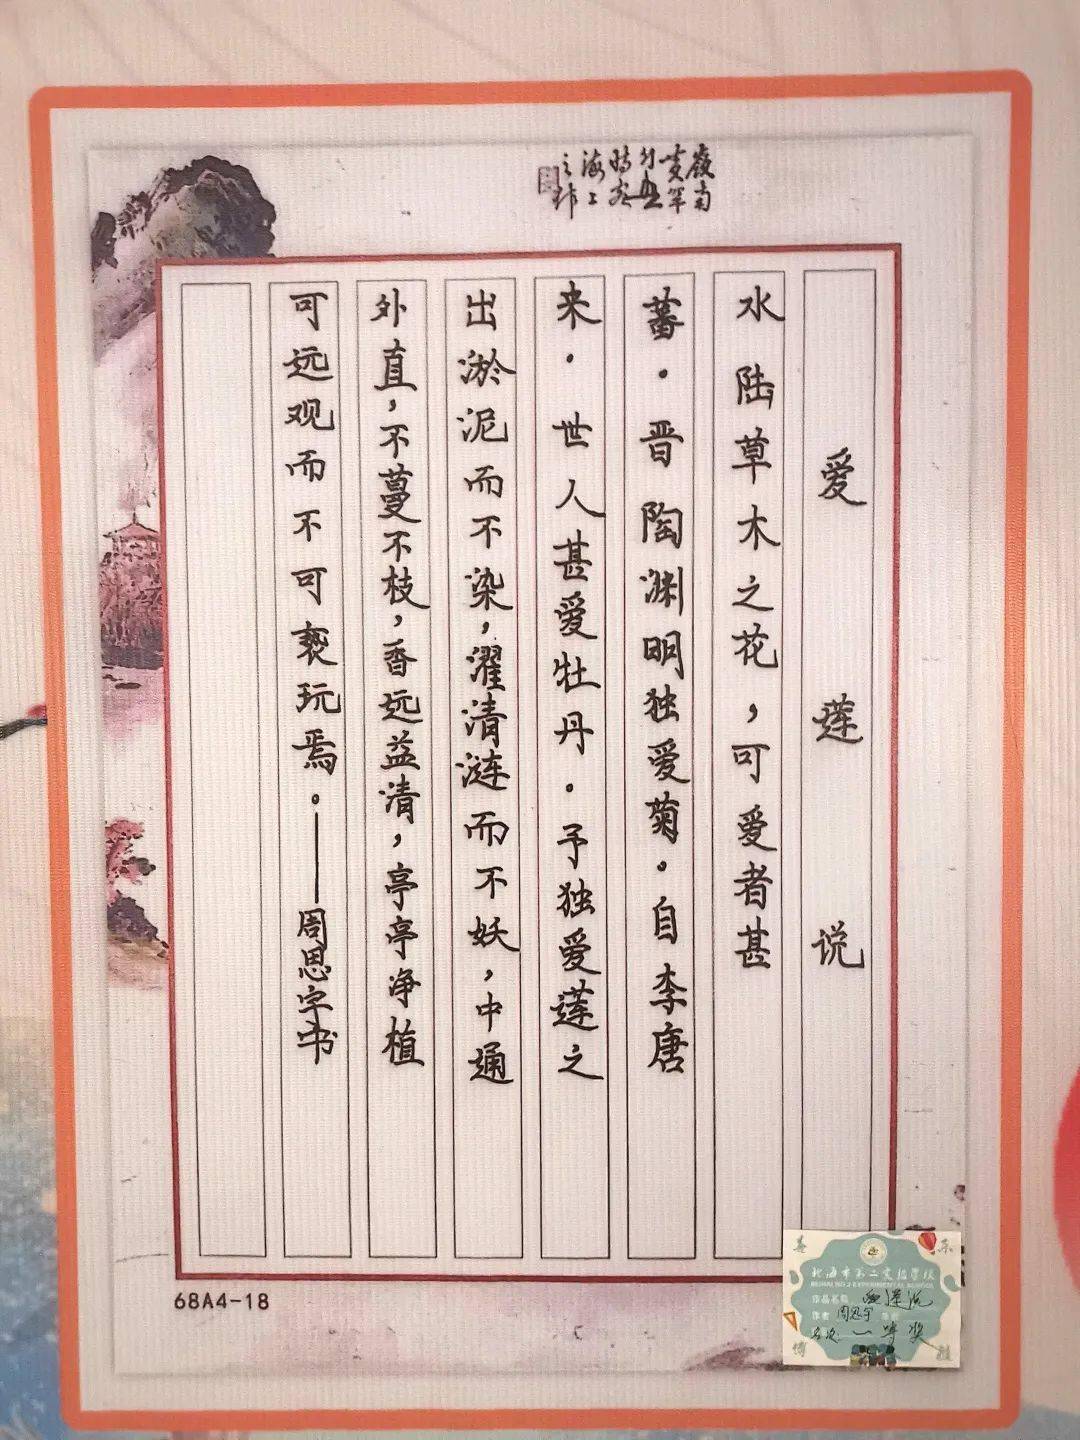 爱莲说
水陆草木之花，可爱者甚
蕃.晋陶渊明独爱菊.自李唐
来.世人甚爱牡丹.予独爱莲之
出淤泥而不染，濯清涟而不妖，中通
外直，不蔓不枝，香远益清，亭亭净植
可远观而不可亵玩焉。——周思字书
68A4-18
北海市第二实验学校
BEIHAI NO.2 EXPERIMENTAL SCHOOL
作品名称 爱莲说
作者 周思宇
名次: 一等奖